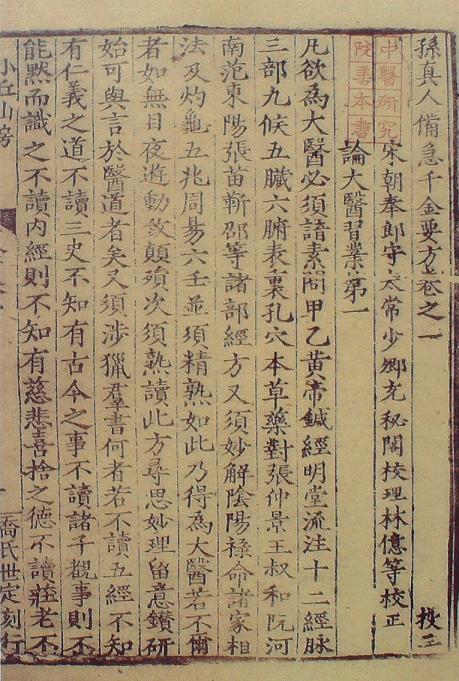 孫真人備急千金要方卷之一
中醫研究
院善本書
宋朝奉郎守太常少卿充秘閣校理林億等校正
論大醫習業第一
凡欲為大醫必須諳素問甲乙黃帝鍼經明堂流注十二經脉
三部九候五臟六腑表裏孔穴本草藥對張仲景王叔和阮河
南范東陽張苗靳邵等諸部經方又須妙解陰陽祿命諸家相
法及灼龜五兆周易六壬並須精熟如此乃得為大醫若不爾
者如無目夜遊動致顛殞次須熟讀此方尋思妙理留意鑽研
始可與言於醫道者矣又須涉獵羣書何者若不讀五經不知
有仁義之道不讀三史不知有古今之事不讀諸子覩事則不
能默而識之不讀內經則不知有慈悲喜捨之德不讀莊老不
小丘山房
喬氏世定刻行